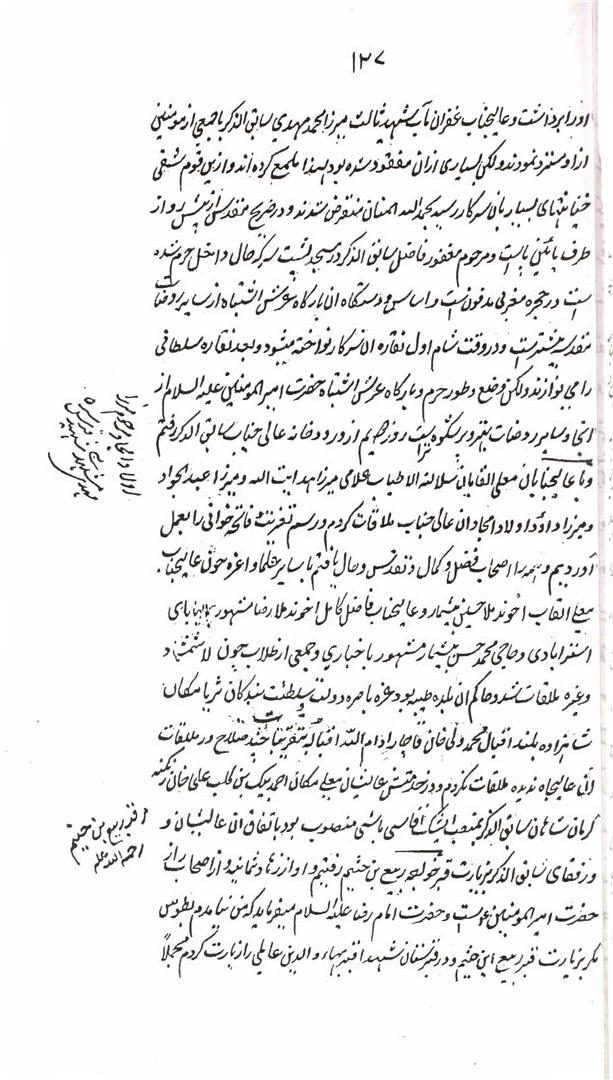 ۱۲۷
او را برداشت و عالیجناب غفران مآب شهید ثالث میرزا محمد مهدی سابق الذکر با جمعی از مومنین
از او مسترد نمودند ولکن بسیاری از آن مفقود شده بود لهذا ملمع کرده اند و ازین قوم شقی
خیانتهای بسیار بآن سرکار رسید بحمد الله المنان منقرض شدند و در ضریح مقدس از پیش رو از
طرف پائین پا است و مرحوم مغفور فاضل سابق الذکر در مسجد پشت سر که حال داخل حرم شده
است در حجره مغربی مدفون است و اساس و دستگاه آن بارگاه عرش اشتباه از سایر روضات
مقدسه بیشتر است و در وقت شام اول نقاره آن سرکار نواخته میشود و بعد نقاره سلطانی
را می نوازند ولکن وضع و طور حرم و بارگاه عرش اشتباه حضرت امیر المومنین علیه السلام از
آنجا و سایر روضات بهتر و پر شکوه تر است روز دهیم از ورود بخانه عالی جناب سابق الذکر رفتم
و با عالیجنابان معلی القابان سلالة الاطیاب علامی میرزا هدایت الله و میرزا عبد الجواد
و میرزا داؤد اولاد امجاد آن عالی جناب ملاقات کردم و رسم تعزیت و فاتحه خوانی را بعمل
آوردیم و همه را اصحاب فضل و کمال و تقدس و حال یافتم با سایر علما و اعزه چون عالیجناب
معلی القاب آخوند ملا حسین پیشنماز و عالیجناب فاضل کامل آخوند ملا رضا مشهور
استرابادی و حاجی محمد حسن پیشنماز مشهور باخباری و جمعی از طلاب چون
و غیره ملاقات شد و حاکم آن بلده طیبه بود غره ناصره دولت و سلطنت بندگان ثریا مکان
شاهزاده بلند اقبال محمد ولی خان قاجار ادام الله اقباله بتقریبات چند صلاح در ملاقات
آن عالیجاه ندیده ملاقات نکردم و در خدمتش عالیشان معلی مکان احمد بیک بن کلب علی خان زنگنه
کرمانشاهان سابق الذکر بمنصب ایشیک آقاسی باشی منصوب بود باتفاق آن عالیشان و
و رفقای سابق الذکر بزیارت قبر خواجه ربیع بن خثیم رفتیم و او از زهاد ثمانیه و از اصحاب راز
حضرت امیر المومنین ع است و حضرت امام رضا علیه السلام میفرماید که من نیامدم بطوس
مگر بزیارت قبر ربیع ابن خثیم و در قبرستان شهدا قبر بهاء الدین عاملی را زیارت کردم مجملاً
اولاد امجاد مرحوم میرزا
قبر ربیع بن خثیم
رحمه الله علیه